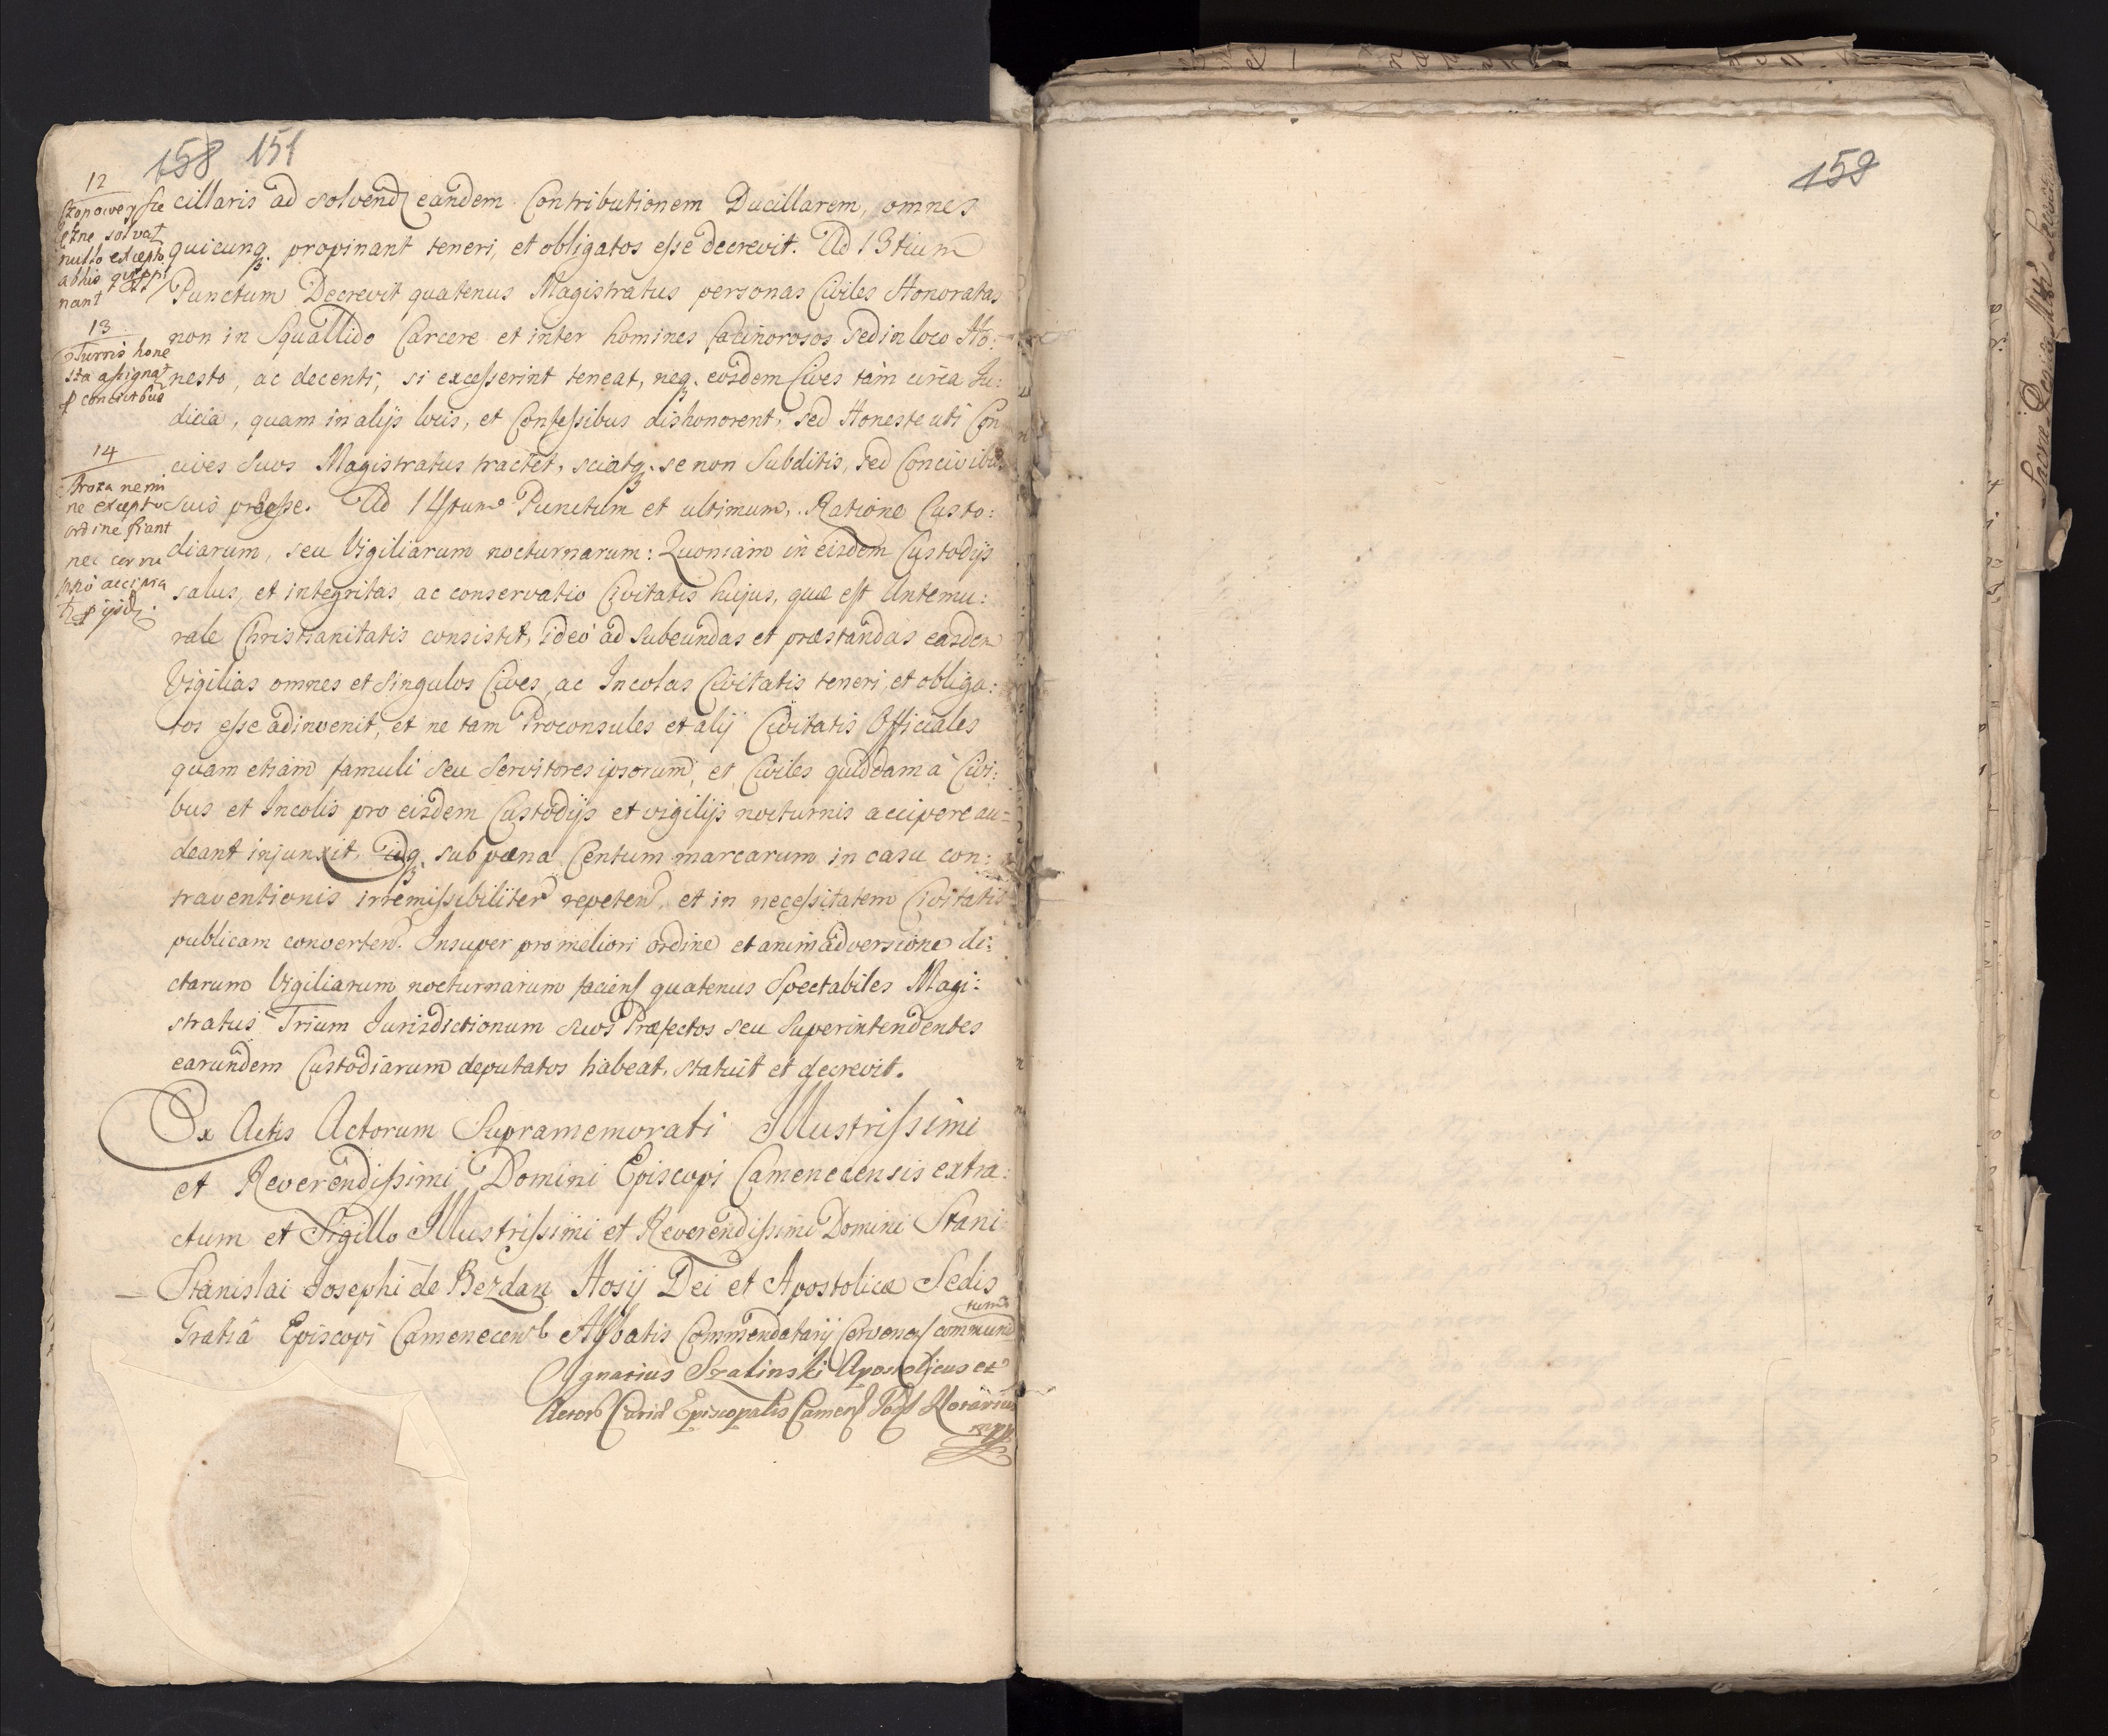 158 151
12
Czopowe
solvat
nullo excepto
ab his qui
nant
cillaris ad solvend eandem Contributionem Ducillarem, omnes
quicunq. propinant teneri, et obligatos esse decrevit. Ad 13tium
Punctum Decrevit quatenus Magistratus personas Civiles Honoratas
non in Squallido Carcere et inter homines facinorosos sed in loco Ho:
nesto, ac decenti, si excesserint teneat, neq. eosdem Cives tam circa Ju:
dicia, quam in alijs locis, et Consessibus dishonorent, sed Honeste uti Con
cives suos Magistratus tractet, sciatq. se non Subditis, sed Concivibus
suis præesse. Ad 14tum Punctum et ultimum, Ratione Custo:
diarum, seu Vigiliarum nocturnarum: Quoniam in eisdem Custodijs
salus, et integritas ac conservatio Civitatis hujus, quæ est Antemu:
rale Christianitatis consistit, ideo ad subeundas et præstandas easdem
Vigilias omnes et singulos Cives, ac Incolas Civitatis teneri, et obliga:
tos esse adinvenit, et ne tam Proconsules et alij Civitatis Officiales
quam etiam famuli seu Servitores ipsorum, et Civiles quiddam a Civi:
bus et Incolis pro eisdem Custodijs et vigilijs nocturnis accipere au=
deant injunxit, idq. sub pæna Centum marcarum in casu con:
traventionis irremissibiliter repeten, et in necessitatem Civitatis
publicam converten. Insuper pro meliori ordine et animadversione di:
ctarum Vigiliarum nocturnarum faciens quatenus Spectabiles Magi:
stratus Trium Jurisdictionum suos Præfectos seu Superintendentes
earundem Custodiarum deputatos habeat, statuit et decrevit.
13
Turris hone
sta assignat
p concivibus
14
Stroza nemi
ne excepto
ordine fiant
nec corru
accipia
Ex Actis Actorum Supramemorati Illustrissimi
et Reverendissimi Domini Episcopi Camenecensis extra:
ctum et Sigillo Illustrissimi et Reverendissimi Domini Stani
Stanislai Josephi de Bezdan Hosij Dei et Apostolicæ Sedis
Gratiâ Episcopi Camenecens Abbatis Commendatarij Cervenens communi
tum
Ignatius Szalinski Apostolicus et
Actor Curiæ Episcopalis Camens Notarius
mpp
159